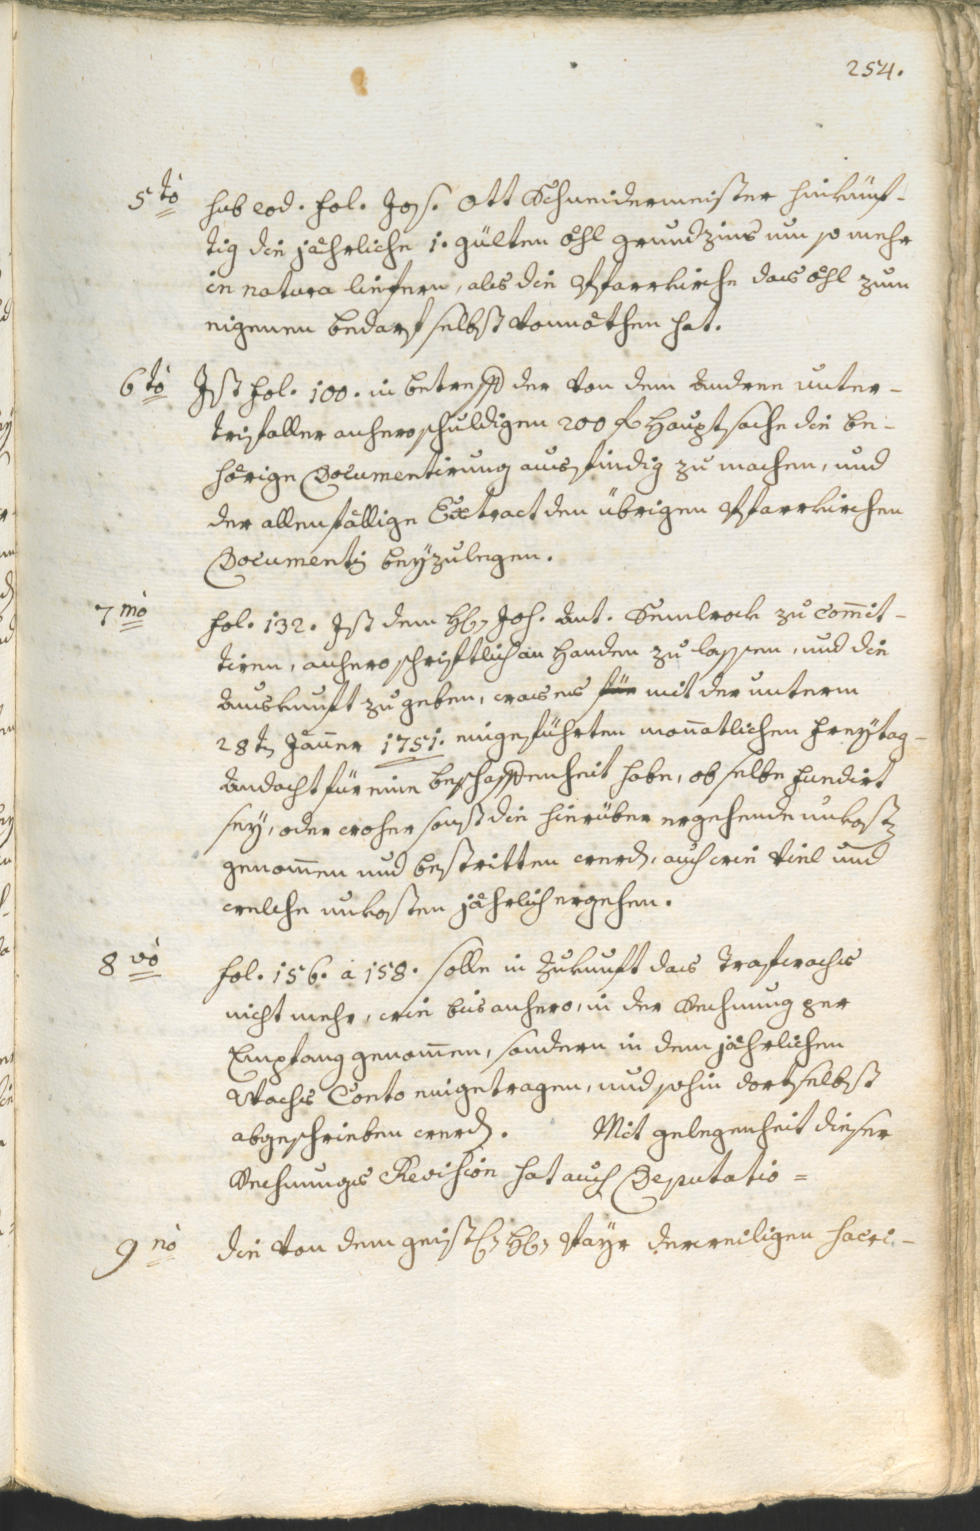 254.
5tò sub eod. fol. Jos. Ott Schneidermeister hinkünf-
tig die jährliche 1. gülten öhl grundzins um so mehr
in natura liefern, als die Pfarrkirche das öhl zum
eigenen bedarf selbst vonnöthen hat.
6tò Ist fol. 100. in betreff der von dem Andree unter-
trifaller anhero schuldigen 200 f Hauptsache die be-
hörige Documentirung ausfindig zu machen, und
der allenfällige Extract den übrigen Pfarrkirchen
Documentis beÿzulegen.
7mò fol. 132. Ist dem H. Joh. Ant. Semlrock zu com̄it-
tiren, anhero schriftlich an Handen zu lassen, und die
Auskunft zu geben, was es für mit der unterm
28t Jäner 1751. eingeführten monatlichen Freÿtag-
Andacht für eine beschaffenheit habe, ob selbe fundirt
seÿ, oder woher sonst die hierüber ergehende unkost
genom̄en und bestritten werd, auch wie viel und
welche unkosten jährlich ergehen.
8vò fol. 156. à 158. solle in Zukunft das Trafwachs
nicht mehr, wie bis anhero, in der Rechnung per
Empfang genom̄en, sondern in dem jährlichen
Wachs Conto eingetragen, und sohin dortselbst
abgeschrieben werd. Mit gelegenheit dieser
Rechnungs Revision hat auch Deputatio =
9nò die von dem geistl H. Maÿr derweiligen Sacri-